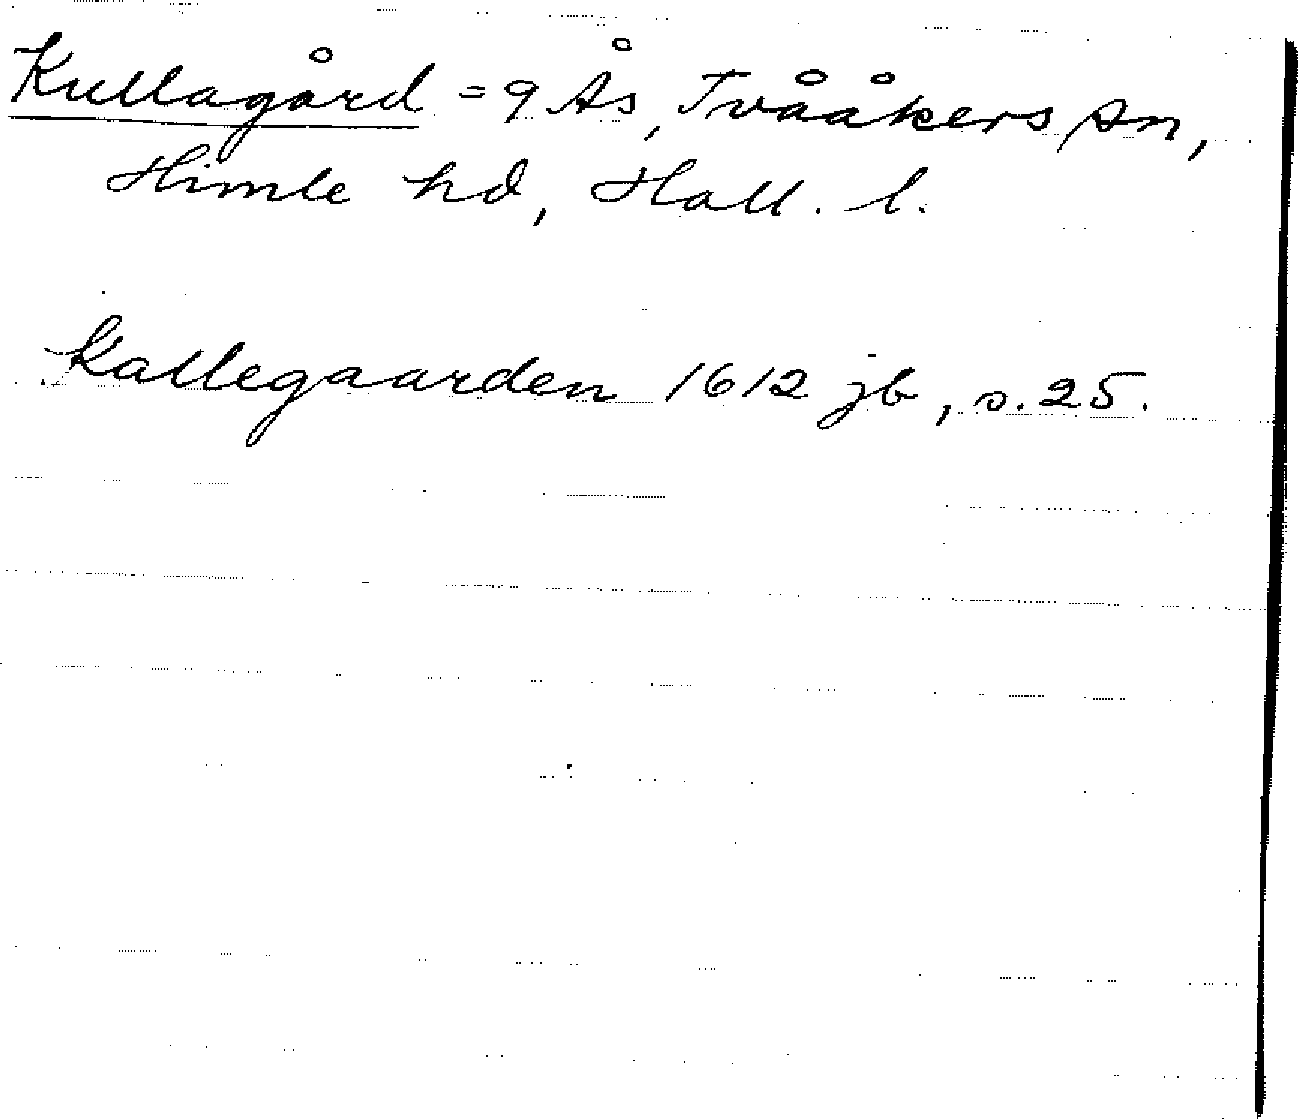 Kullagård = 9 Ås, Tvååkers sn,
Himle hd, Hall. l.
Kallegaarden 1612 jb, s. 25.